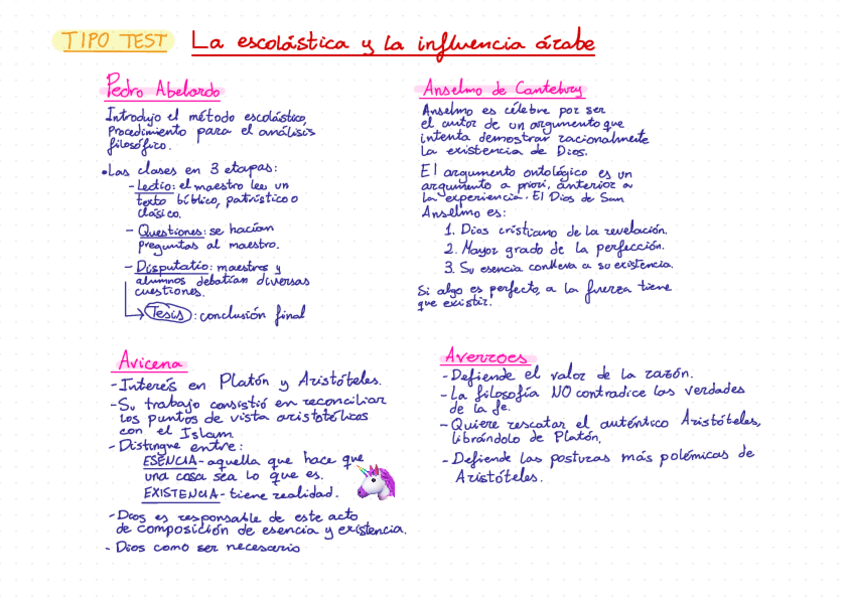 TIPO TEST La escolástica y la influencia árabe
Pedro Abelardo
Introdujo el método escolástico,
Procedimiento para el análisis
filosófico.
•Las clases en 3 etapas:
- Lectio: el maestro lee un
texto bíblico, patrístico o
clásico.
- Questiones: se hacían
preguntas al maestro.
- Disputatio: maestros y
alumnos debatían diversas
cuestiones.
→ Tesis: conclusión final
Anselmo de Cantebury
Anselmo es célebre por ser
el autor de un argumento que
intenta demostrar racionalmente
la existencia de Dios.
El argumento ontológico es un
argumento a priori, anterior a
la experiencia. El Dios de San
Anselmo es:
1. Dios cristiano de la revelación.
2. Mayor grado de la perfección.
3. Su esencia conlleva a su existencia.
Si algo es perfecto, a la fuerza tiene
que existir.
Avicena
- Interés en Platón y Aristóteles.
- Su trabajo consistió en reconciliar
los puntos de vista aristotélicos
con el Islam
- Distingue entre:
ESENCIA- aquella que hace que
una cosa sea lo que es.
EXISTENCIA- tiene realidad.
- Dios es responsable de este acto
de composición de esencia y existencia.
- Dios como ser necesario
Averroes
- Defiende el valor de la razón.
- La filosofía NO contradice las verdades
de la fe.
- Quiere rescatar el auténtico Aristóteles,
librándolo de Platón.
- Defiende las posturas más polémicas de
Aristóteles.